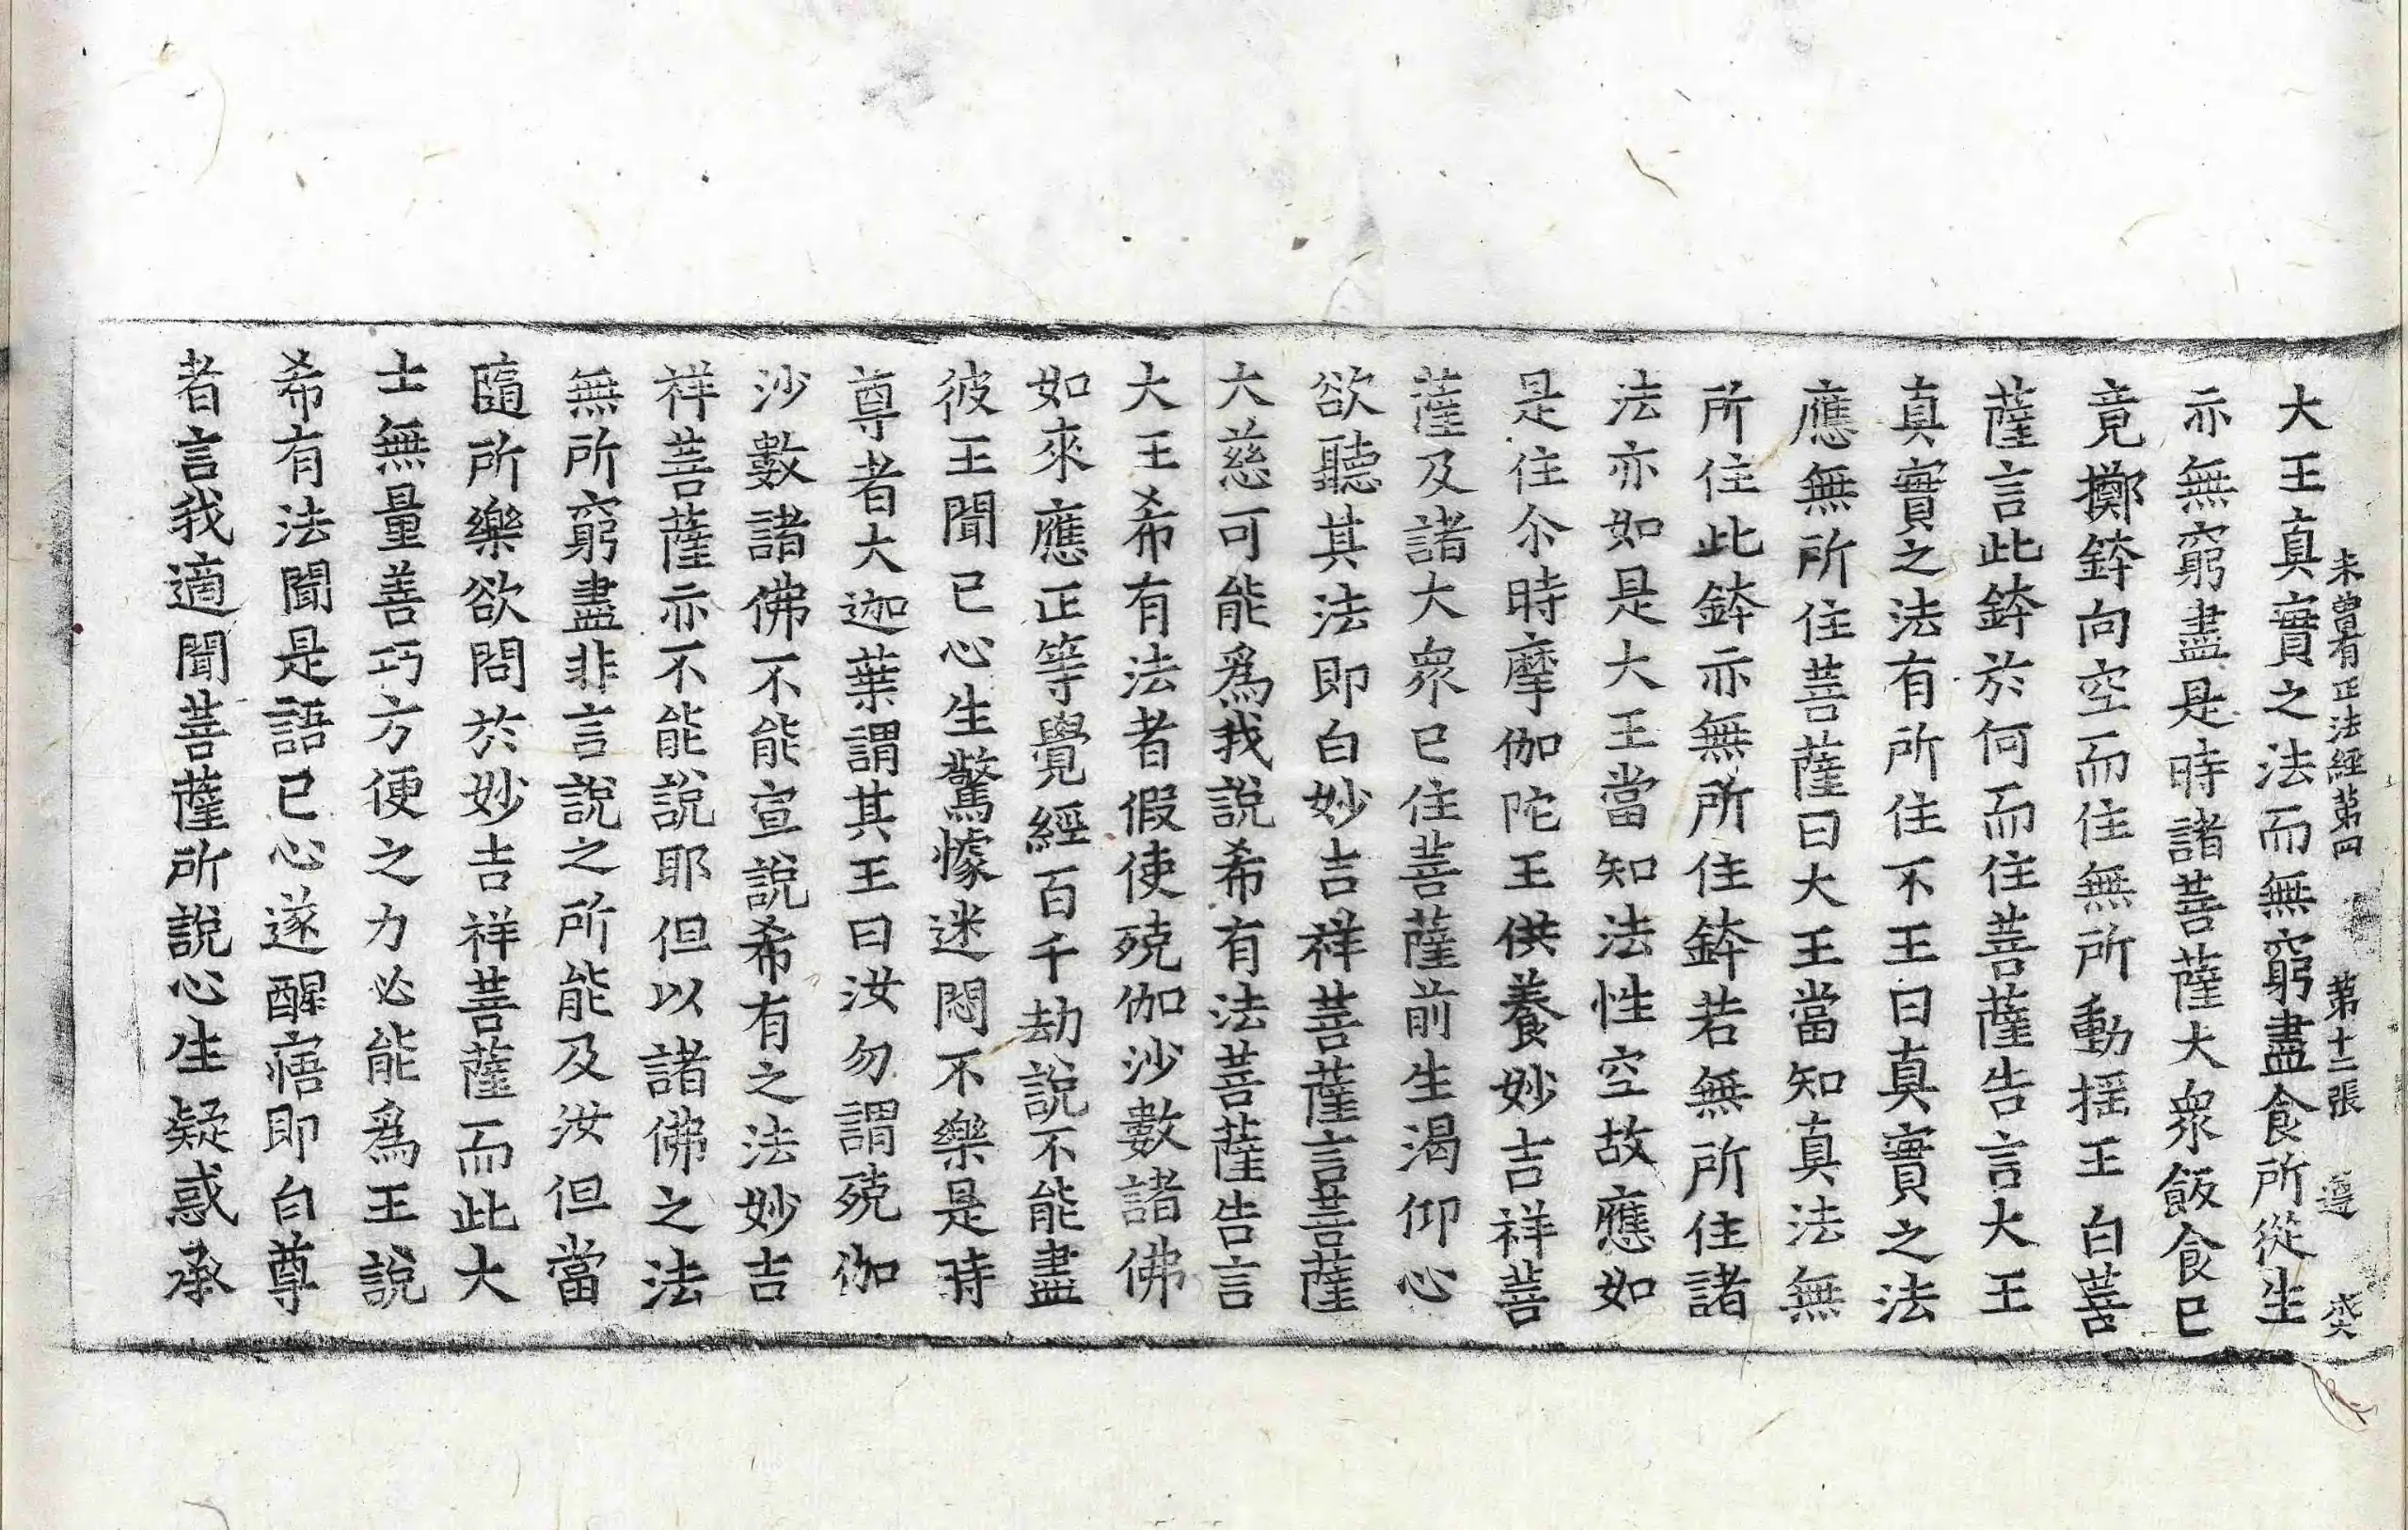 未曾有正法經第四 第十二張 遵
大王真實之法而無窮盡食所從生
亦無窮盡是時諸菩薩大衆飯食已
竟擲鉢向空而住無所動揺王白菩
薩言此鉢於何而住菩薩告言大王
真實之法有所住不王曰真實之法
應無所住菩薩曰大王當知真法無
所住此鉢亦無所住鉢若無所住諸
法亦如是大王當知法性空故應如
是住尒時摩伽陀王供養妙吉祥菩
薩及諸大衆已住菩薩前生渴仰心
欲聽其法即白妙吉祥菩薩言菩薩
大慈可能爲我説希有法菩薩告言
大王希有法者假使殑伽沙數諸佛
如來應正等覺經百千劫説不能盡
彼王聞已心生驚懅迷悶不樂是時
尊者大迦葉謂其王曰汝勿謂殑伽
沙數諸佛不能宣説希有之法妙吉
祥菩薩亦不能説耶但以諸佛之法
無所窮盡非言説之所能及汝但當
隨所樂欲問於妙吉祥菩薩而此大
士無量善巧方便之力必能爲王説
希有法聞是語已心遂醒寤即白尊
者言我適聞菩薩所説心生疑惑承